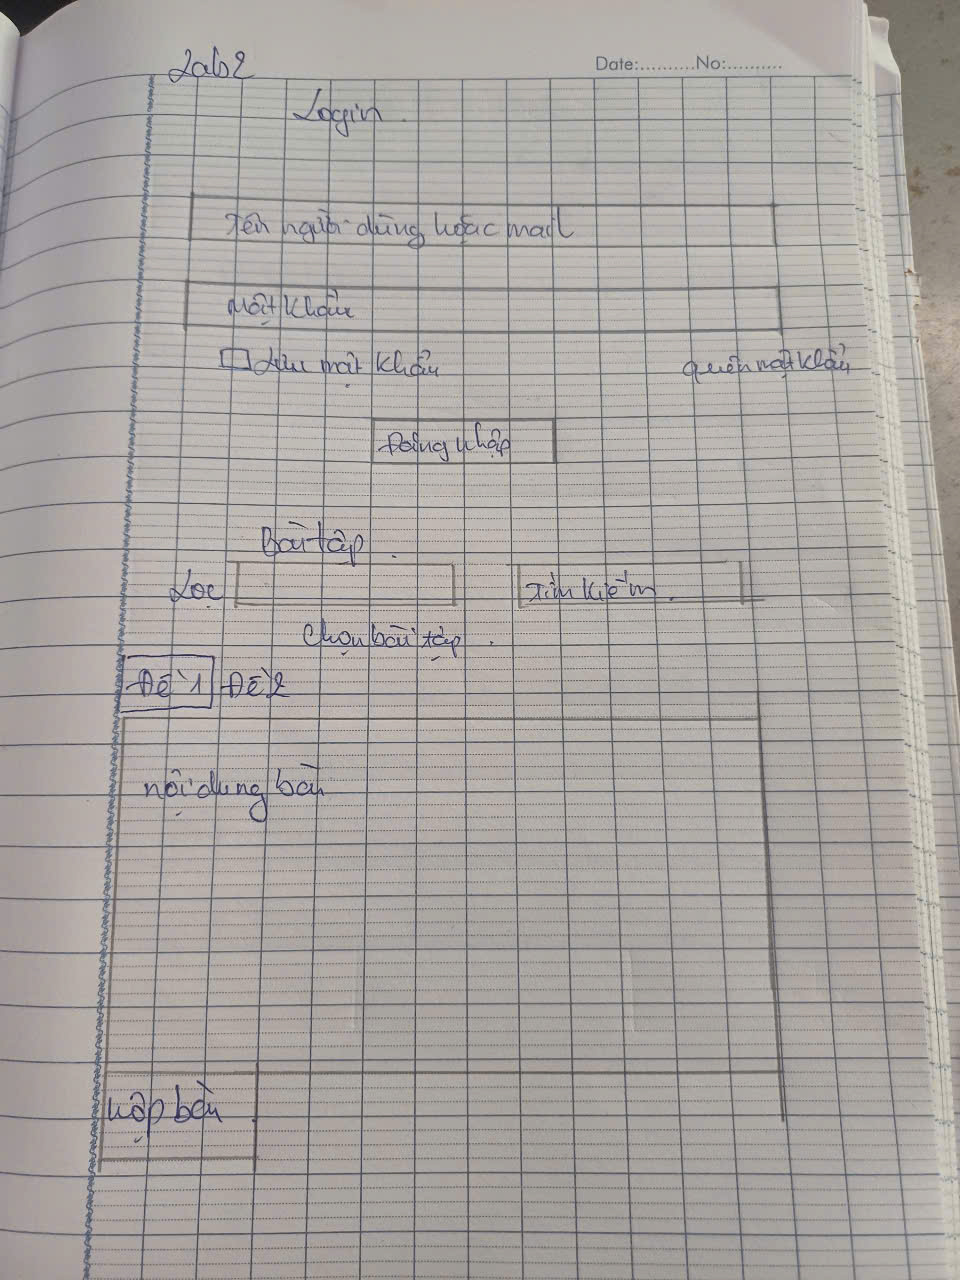 Lab2
Date:..........No:..........
Login
Tên người dùng hoặc mail
Mật khẩu
Lưu mật khẩu quên mật khẩu
Đăng nhập
Bài tập
Lọc Tìm kiếm
Chọn bài tập
Đề 1 Đề 2
nội dung bài
nộp bài